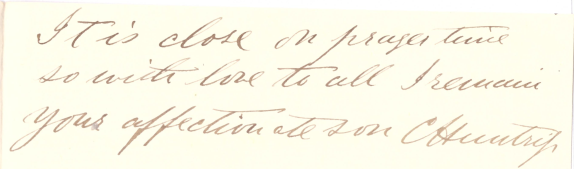 It is close on prayer time
so with love to all I remain
your affectionate son C Huntrip